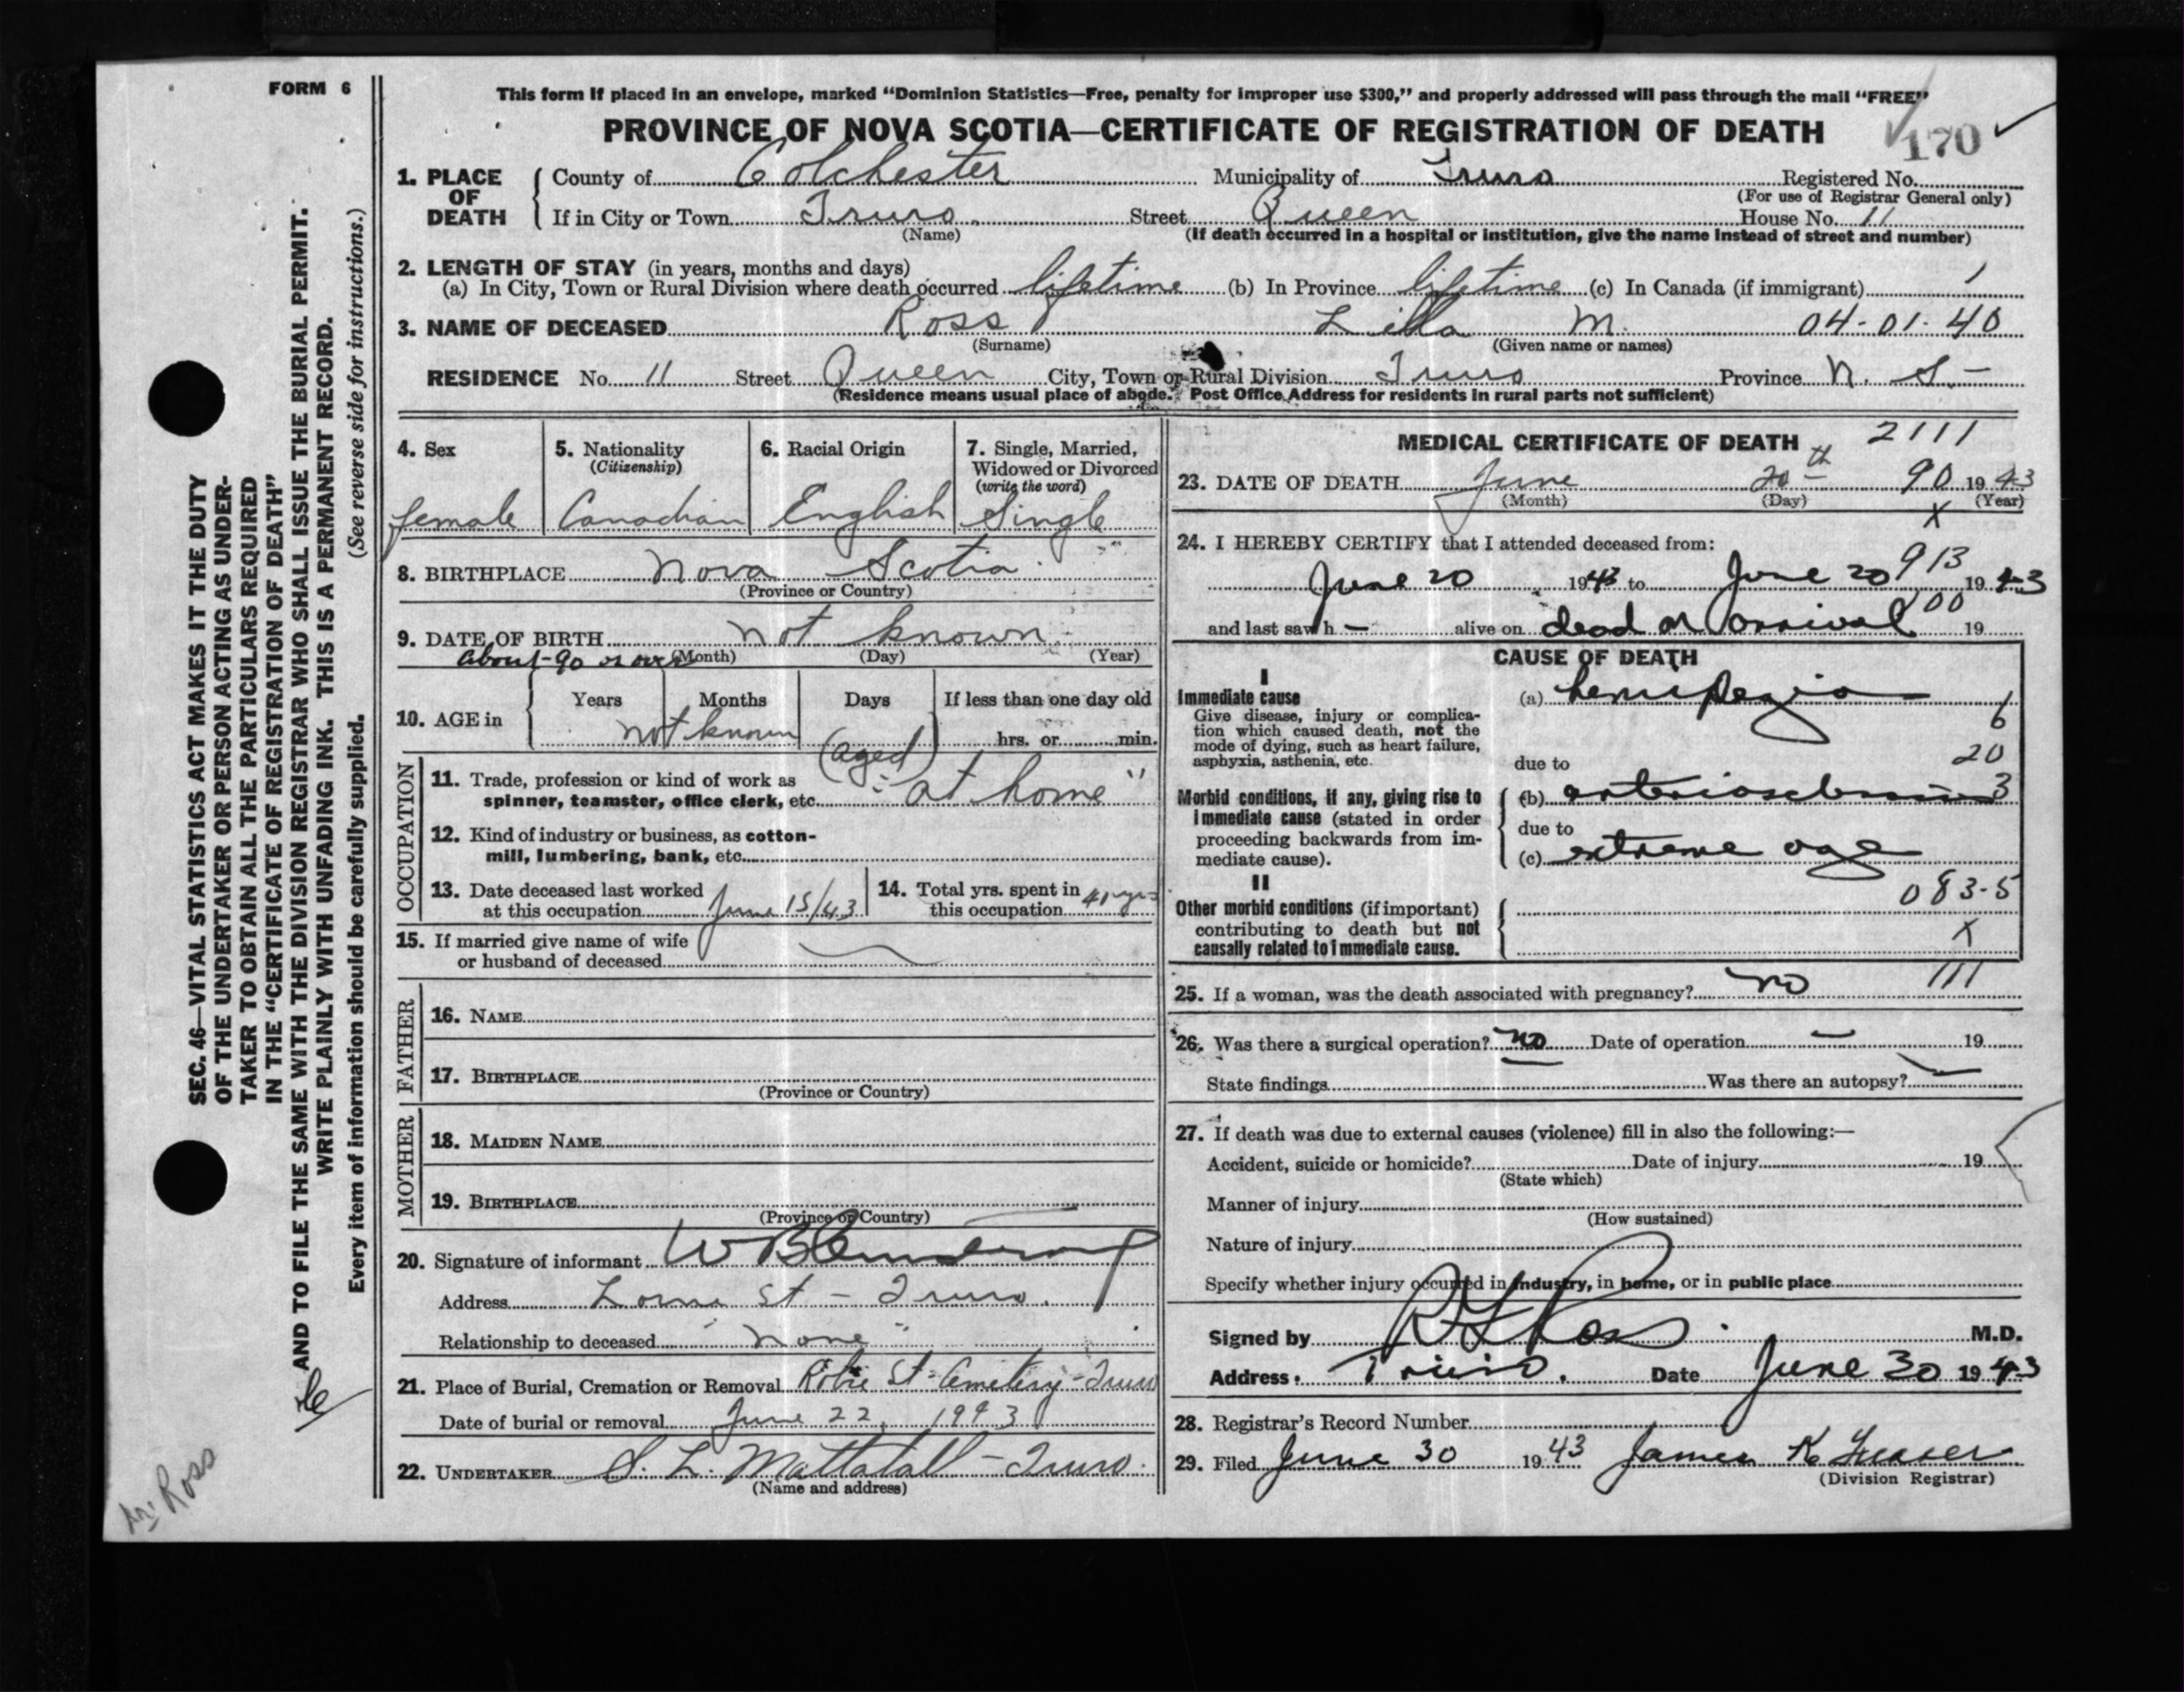 FORM 6
This form if placed in an envelope, marked "Dominion Statistics—Free, penalty for improper use $300," and properly addressed will pass through the mail "FREE"
PROVINCE OF NOVA SCOTIA—CERTIFICATE OF REGISTRATION OF DEATH
170
1. PLACE OF DEATH County of Colchester Municipality of Truro Registered No.
(For use of Registrar General only)
If in City or Town Truro. Street Queen House No. 11
(Name) (If death occurred in a hospital or institution, give the name instead of street and number)
2. LENGTH OF STAY (in years, months and days)
(a) In City, Town or Rural Division where death occurred lifetime (b) In Province lifetime (c) In Canada (if immigrant) 1
3. NAME OF DECEASED Ross Lilla M. 04-01-40
(Surname) (Given name or names)
RESIDENCE No. 11 Street Queen City, Town or Rural Division Truro Province N. S.-
(Residence means usual place of abode. Post Office Address for residents in rural parts not sufficient)
4. Sex 5. Nationality (Citizenship) 6. Racial Origin 7. Single, Married, Widowed or Divorced (write the word)
female Canadian English Single
8. BIRTHPLACE Nova Scotia
(Province or Country)
9. DATE OF BIRTH not known
(Month) (Day) (Year)
About 90 or over
10. AGE in Years Months Days If less than one day old
not known (aged) hrs. or min.
OCCUPATION
11. Trade, profession or kind of work as
spinner, teamster, office clerk, etc. "at home"
12. Kind of industry or business, as cotton-
mill, lumbering, bank, etc.
13. Date deceased last worked
at this occupation June 15/43
14. Total yrs. spent in
this occupation
15. If married give name of wife
or husband of deceased
FATHER
16. NAME
17. BIRTHPLACE
(Province or Country)
MOTHER
18. MAIDEN NAME
19. BIRTHPLACE
(Province or Country)
20. Signature of informant
Address St - Truro.
Relationship to deceased "none"
21. Place of Burial, Cremation or Removal Robie St. Cemetery - Truro
Date of burial or removal June 22, 1943
22. UNDERTAKER S. L. Mattatall - Truro.
(Name and address)
MEDICAL CERTIFICATE OF DEATH 2111
23. DATE OF DEATH June 20th 90 1943
(Month) (Day) (Year)
X
24. I HEREBY CERTIFY that I attended deceased from:
913
June 20 1943 to June 20 1943
100
and last saw h — alive on dead on arrival 19
CAUSE OF DEATH
I
Immediate cause (a) hemiplegia 6
Give disease, injury or complica-
tion which caused death, not the
mode of dying, such as heart failure,
asphyxia, asthenia, etc.
20
due to
Morbid conditions, if any, giving rise to
immediate cause (stated in order
proceeding backwards from im-
mediate cause).
(b) arteriosclerosis 3
due to
(c) extreme age
II
083-5
Other morbid conditions (if important)
contributing to death but not
causally related to immediate cause.
X
25. If a woman, was the death associated with pregnancy? no 111
26. Was there a surgical operation? no Date of operation — 19
State findings Was there an autopsy? —
27. If death was due to external causes (violence) fill in also the following:—
Accident, suicide or homicide? Date of injury 19
(State which)
Manner of injury
(How sustained)
Nature of injury
Specify whether injury occurred in industry, in home, or in public place
Signed by Ross M.D.
Address Truro. Date June 30 1943
28. Registrar's Record Number
29. Filed June 30 1943 James K
(Division Registrar)
SEC. 46—VITAL STATISTICS ACT MAKES IT THE DUTY
OF THE UNDERTAKER OR PERSON ACTING AS UNDER-
TAKER TO OBTAIN ALL THE PARTICULARS REQUIRED
IN THE "CERTIFICATE OF REGISTRATION OF DEATH"
AND TO FILE THE SAME WITH THE DIVISION REGISTRAR WHO SHALL ISSUE THE BURIAL PERMIT.
WRITE PLAINLY WITH UNFADING INK. THIS IS A PERMANENT RECORD.
Every item of information should be carefully supplied. (See reverse side for instructions.)
Ross